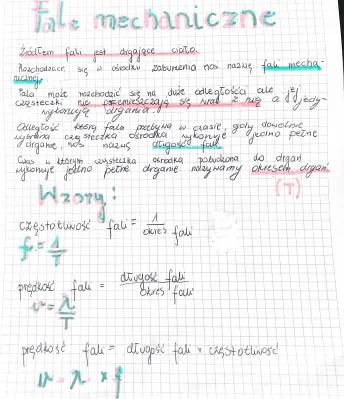 Fale mechaniczne
Źródłem fali jest drgające ciało.
Rozchodzące się w ośrodku zaburzenia nosi nazwę fali mecha-
nicznej.
Fala może rozchodzić się na duże odległości ale jej
cząsteczki nie przemieszczają się wraz z nią a jedy-
wykonują drgania.
Odległość którą fala przebywa w czasie, gdy dowolnie
wybrana cząsteczka ośrodka wykonuje jedno pełne
drganie, nosi nazwę długość fali.
Czas w którym cząsteczka ośrodka pobudzona do drgań
wykonuje jedno pełne drganie nazywamy okresem drgań
(T)
Wzory:
częstotliwość fali = 1 / okres fali
f = 1 / T
prędkość fali = długość fali / okres fali
v = λ / T
prędkość fali = długość fali × częstotliwość
v = λ × f